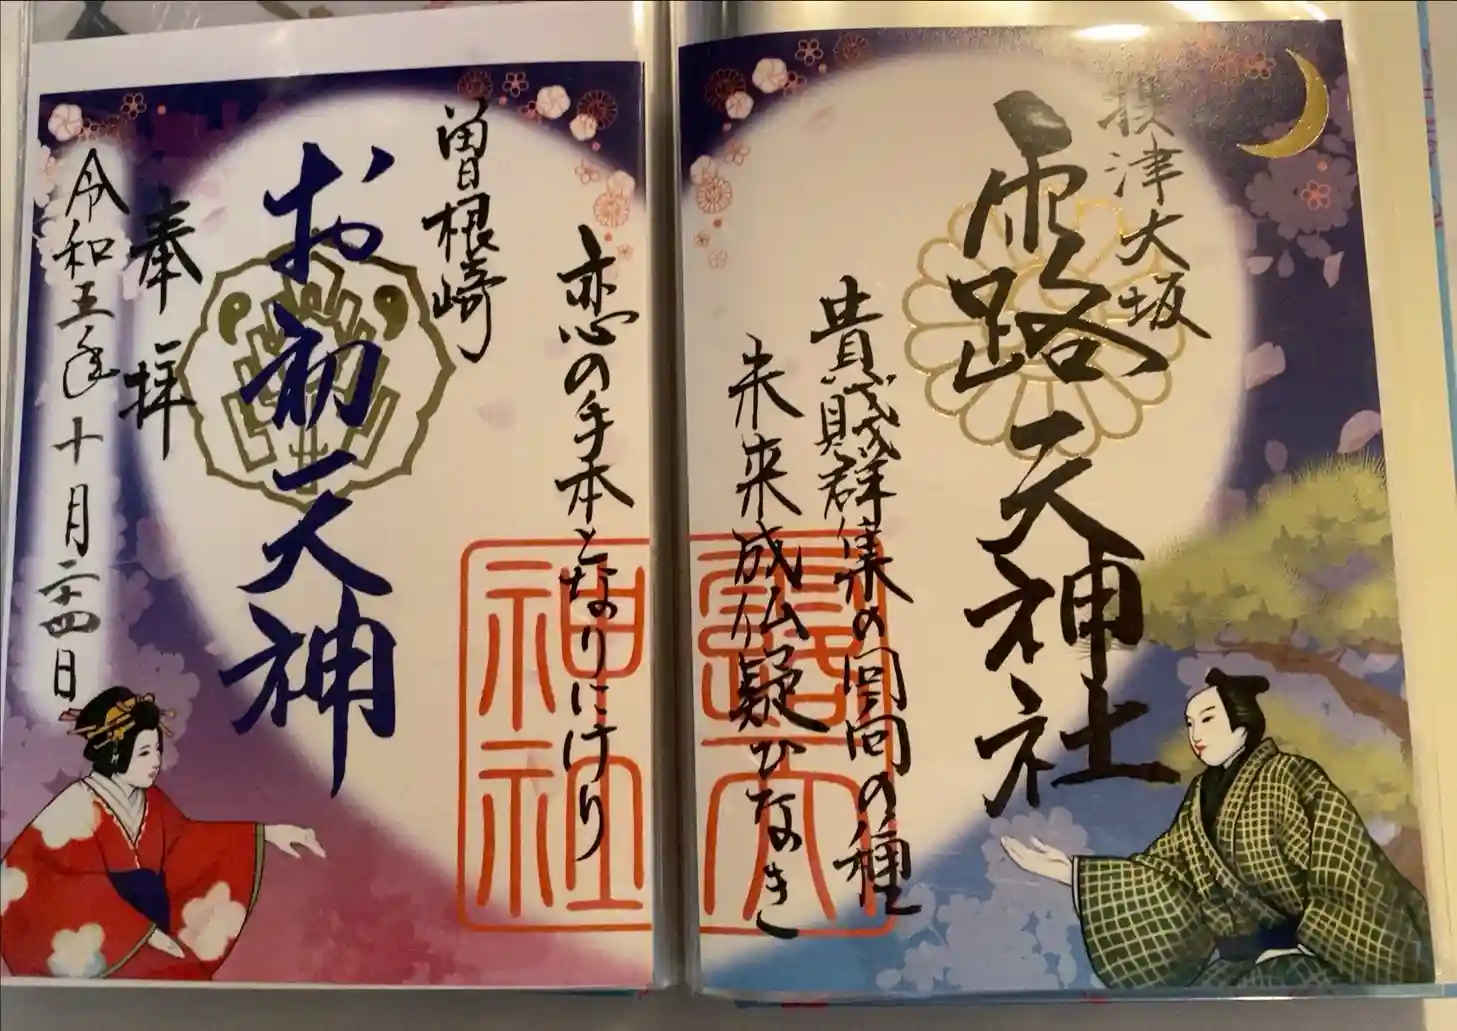 摂津大坂
露天神社
貴賤群集の回向の種
未来成仏疑ひなき
恋の手本となりにけり
曽根崎
お初天神
奉拝
令和五年十月二十四日
露天
神社